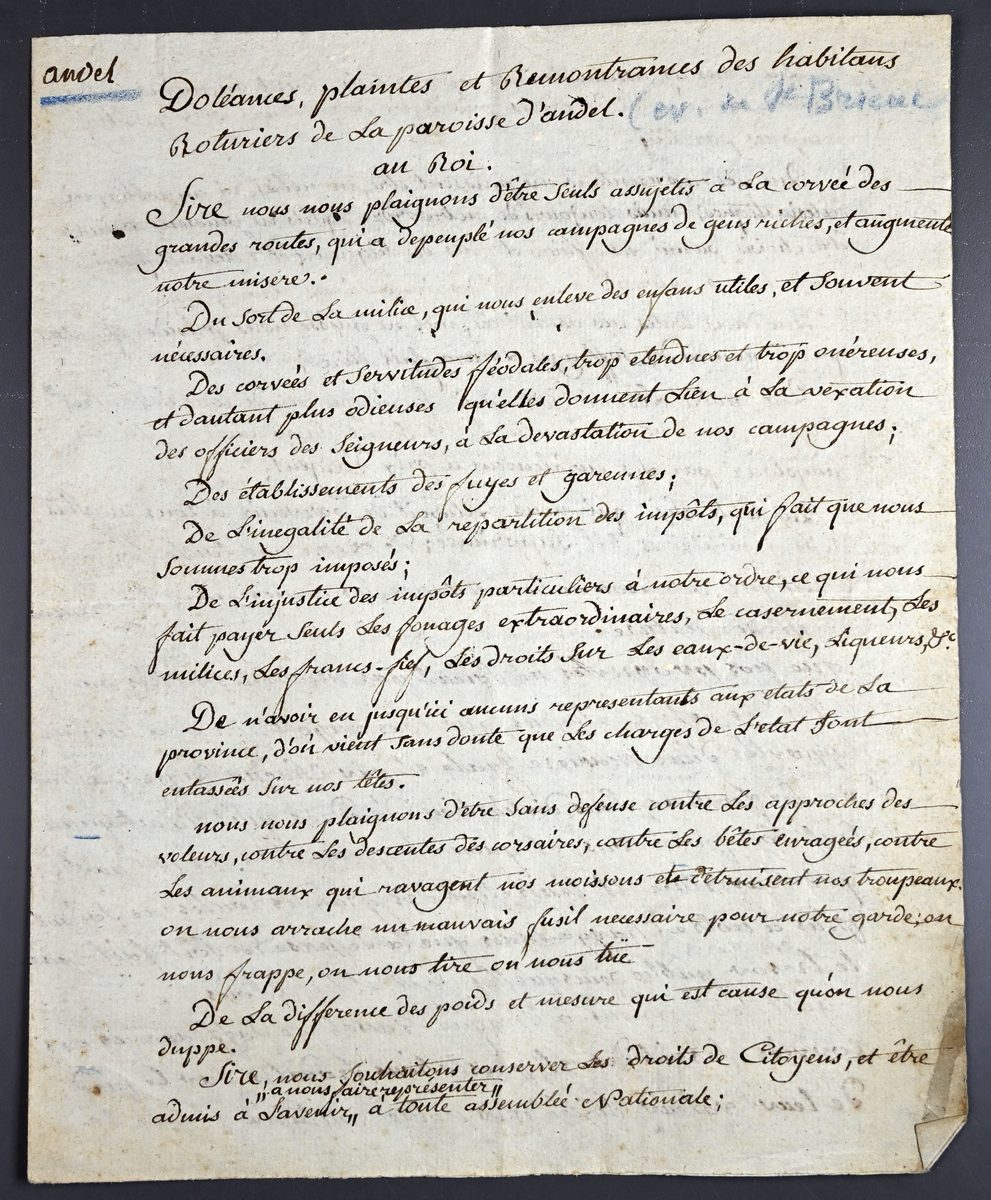 andel
Doléances, plaintes et Remontrances des habitans
Roturiers de La paroisse d'andel. (ev. de St Brieuc
au Roi.
Sire nous nous plaignons d'être seuls assujetis à La corveé des
grandes routes, qui a depeuplé nos campagnes de gens riches, et augmenté
notre misere.
Du sort de La milice, qui nous enleve des enfans utiles, et souvent
nécessaires.
Des corveés et servitudes féodales, trop etendues et trop onéreuses,
et dautant plus odieuses qu'elles donnent Lien à La vexation
des officiers des seigneurs, à La devastation de nos campagnes;
Des établissements des fuyes et garennes;
De L'inegalité de La repartition des impôts, qui fait que nous
sommes trop imposés;
De L'injustice des impôts particuliers à notre ordre, ce qui nous
fait payer seuls Les fouages extraordinaires, Le casernement, Les
milices, Les francs-fief, Les droits sur Les eaux-de-vie, Liqueurs, &c.
De n'avoir eu jusqu'ici aucuns representants aux etats de La
province, d'où vient sans doute que Les charges de L'etat sont
entasseés sur nos têtes.
nous nous plaignons d'être sans defense contre Les approches des
voleurs, contre Les descentes des corsaires, contre Les bêtes enrageés, contre
Les animaux qui ravagent nos moissons et détruisent nos troupeaux.
on nous arrache un mauvais fusil necessaire pour notre garde; on
nous frappe, on nous tire on nous tüe
De La difference des poids et mesure qui est cause qu'on nous
duppe.
Sire, nous souhaitons conserver Les droits de Citoyens, et être
"a nous faire représenter"
admis à L'avenir" à toute assembleé Nationale;